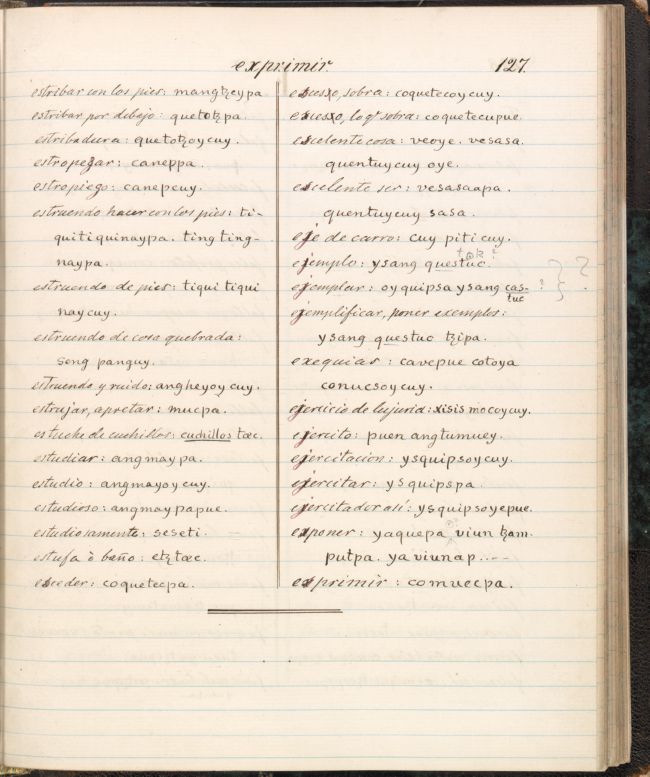 exprimir. 127.
estribar con los pies: mangtzeypa
estribar por debajo: quetotzpa
estribadura: quetotzoycuy.
estropezar: caneppa.
estropiego: canepcuy.
estruendo hacer con los piés: ti-
quitiquinaypa. ting ting-
naypa.
estruendo de pies: tiqui tiqui
naycuy.
estruendo de cosa quebrada:
song panguy.
estruendo y ruido: angheyoycuy.
estrujar, apretar: mucpa.
estuche de cuchillos: cuchillos tæc.
estudiar: angmaypa.
estudio: angmayoycuy.
estudioso: angmaypapue.
estudiosamente: seseti.
estufa ò baño: etztæc.
esceder: coquetecpa.
escesso, sobra: coquetecoycuy.
escesso, lo qe sobra: coquetecupue.
escelente cosa: veoye. vesasa.
quentuycuy oye.
escelente ser: vesasaapa.
quentuycuy sasa.
eje de carro: cuy piti cuy.
ejemplo: ysang questuc.
ejemplar: oy quipsa ysang cas- ? ?
tuc
ejemplificar, poner exemplos:
ysang questuc tzipa.
exequias: cavepue cotoya
conucsoycuy.
ejercicio de lujuria: xisis mocoycuy.
ejercito: puen angtumuey.
ejercitacion: ysquipsoycuy.
ejercitar: ysquipspa.
ejercitador asi: ysquipsoyepue.
exponer: yaquepa viun tzam.
putpa. ya viunap....
exprimir: comuecpa.